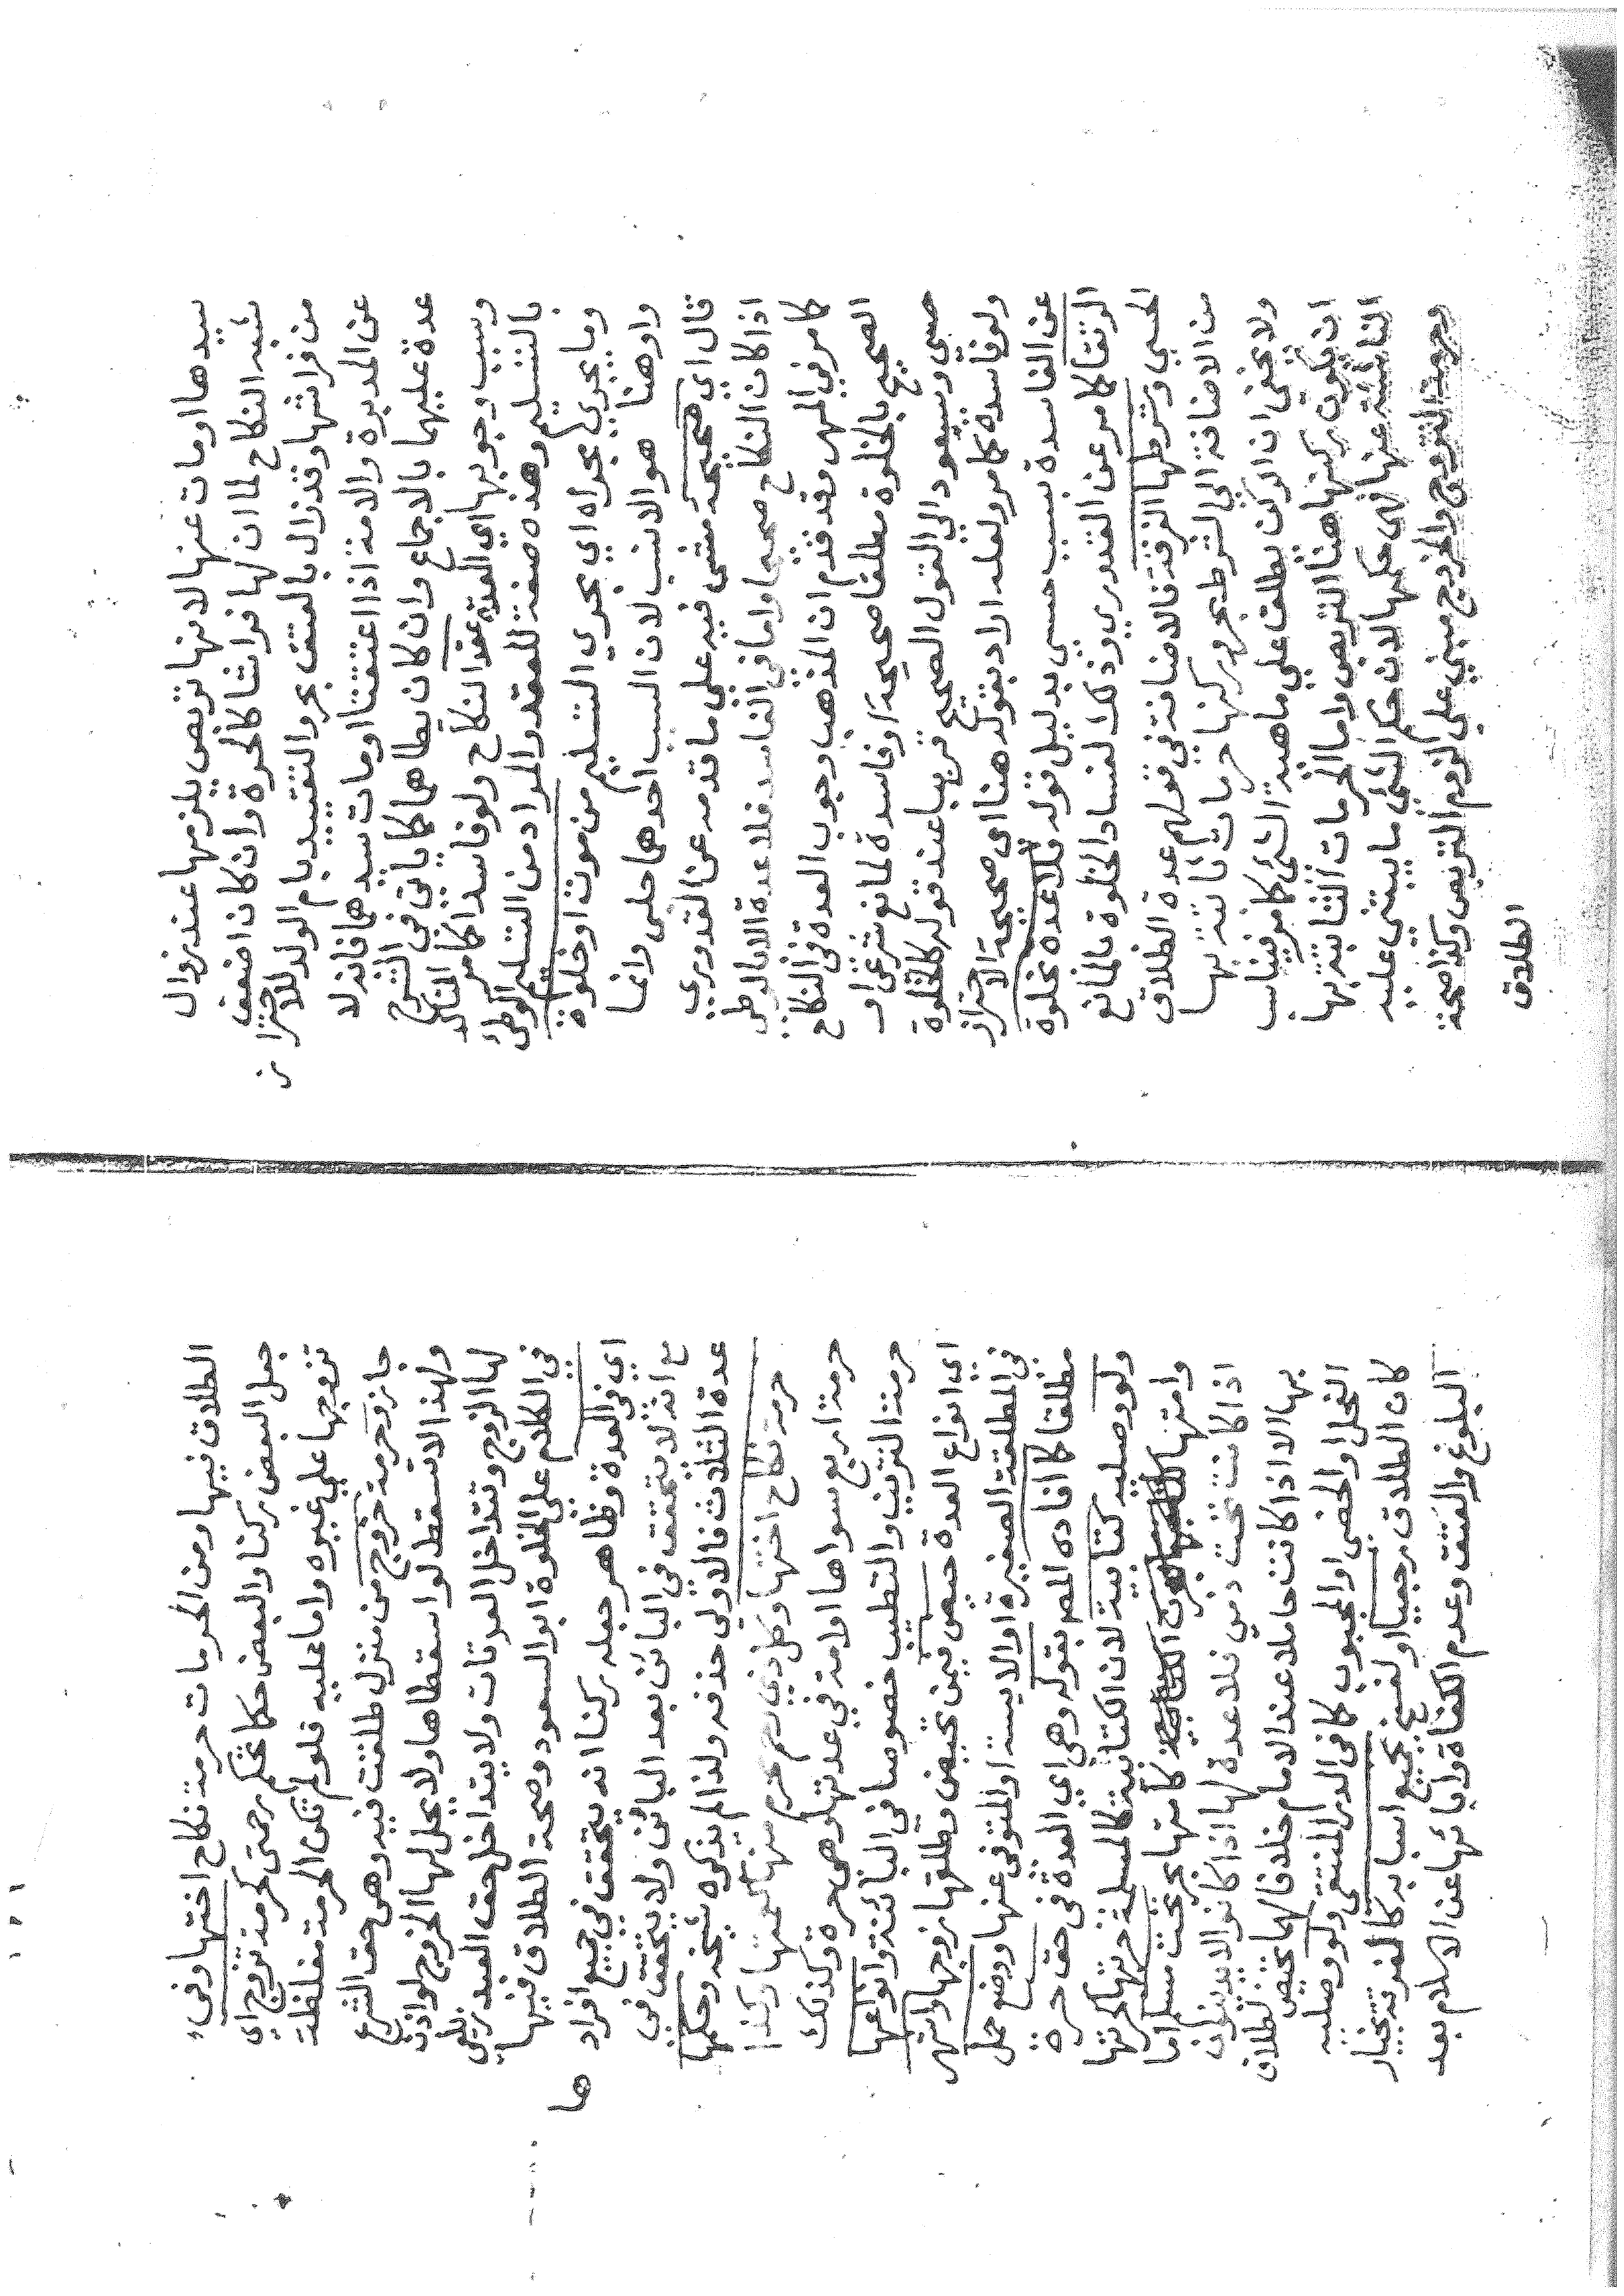 سيدها او مات عنها لانها تربص يلزمها عند زوال
شبه النكاح لما ان لها فراشا كالحرة وان كان اضعف
من فراشها وقد زال بالعتق بحر والتقييد بام الولد للاحترا
ز
عن المدبرة والامة اذا اعتقتا او مات سيدهما فانه لا
عدة عليهما بالاجماع وان كان يطاهما كما ياتي في الشرح
وسبب وجوبها اي العدة عقد النكاح ولو فاسدا كما مر المتاكد
بالتسليم وهذه صفة للعقد والمراد من التسليم الوطئ
وما يجري مجراه اي مجري التسليم من موت او خلوة
واو هنا هو الانسب لان السبب احدهما حلبي وانما
قال اي صحيحة مشى فيه على ما قدمه عن القدوري
اذا كان النكاح صحيحا واما في الفاسد فلا عدة الا بالوطئ
كما مر في المهر وقد قدم ان المذهب وجوب العدة في النكاح
الصحيح بالخلوة مطلقا صحيحة او فاسدة لمانع شرعي او
حسي وسيعود الى القول الصحيح قريبا عند قوله كالخلوة
ولو فاسدة كما مر ولعله اراد بقوله هنا اي صحيحة الاحتراز
عن الفاسدة بسبب حسي بدليل قوله فلا عدة بخلوة
الرتقا كما مر عن القدوري وذكرا لفساد الخلوة بالمانع
الحسي وشرطها الفرقة فالاضافة في قولهم عدة الطلاق
من الاضافة الى الشرط بحر وركنها حرمات ثابتة بها
ولا يخفى ان الركن يطلق على ماهية الشئ كما مر فيناسب
ان يكون ركنها هنا التربص واما الحرمات الثابتة بها
الناشئة عنها فهي حكمها لان حكم الشئ ما يبتني عليه
وحرمة التزوج والخروج مبني على لزوم التربص وكذا صحة
الطلاق
الطلاق فيها ومن الحرمات حرمة نكاح اختها وفي
جعل البعض ركنا والبعض حكما تحكم رحمتى كحرمة تزوج اي
تزوجها على غيره واما عليه فلو لم تكن الحرمة مغلظة
جاز وحرمة خروج من منزل طلقت فيه وهي حق الشرع
ولهذا لا تسقط لو اسقطاها ولا يحل لها الخروج لو اذن
لها الزوج وتتداخل العدتان ولا يتداخل حق العبد زيلعي
في الكلام على الخلوة ابو السعود وصحة الطلاق فيها
اي في العدة وظاهر جعله ركنا انه يتحقق في جميع افراد
ها
مع انه لا يتحقق في البائن بعد البائن ولا يتحقق في
عدة الثلاث فالاولى حذفه ولذا لم يذكره شيخه وحكمها
حرمة نكاح اختها وكل ذي رحم محرم منها كعمتها وكذا
حرمة اربع سواها او امة في عدتها وهي حرة وكذلك
حرمة التزين والتطيب خصوصا في البائنة وانواعها
اي انواع العدة حيض فيمن تحيض ويطلقها زوجها واشهر
في المطلقة الصغيرة او الايسة او المتوفى عنها ووضع حمل
مطلقا كما افاده المص بقوله وهي اي العدة في حق حرة
ولو وصلية كتابية لان الكتابية كالمسلمة حرتها كحرتها
وامتها كامتها بحر تحت مسلم اما
اذا كانت تحت ذمي فلا عدة لها اذا كانوا لا يدينون
بها الا اذا كانت حاملا عند الامام خلافا لهما تحيض لطلاق
الفحل او الخصي او المجبوب كما في الدر المنتقى ولو وصلية
كان الطلاق رجعيا او لفسخ بجميع اسبابه كالفرقة بخيار
البلوغ والعتق وعدم الكفاة وابائها عن الاسلام بعد